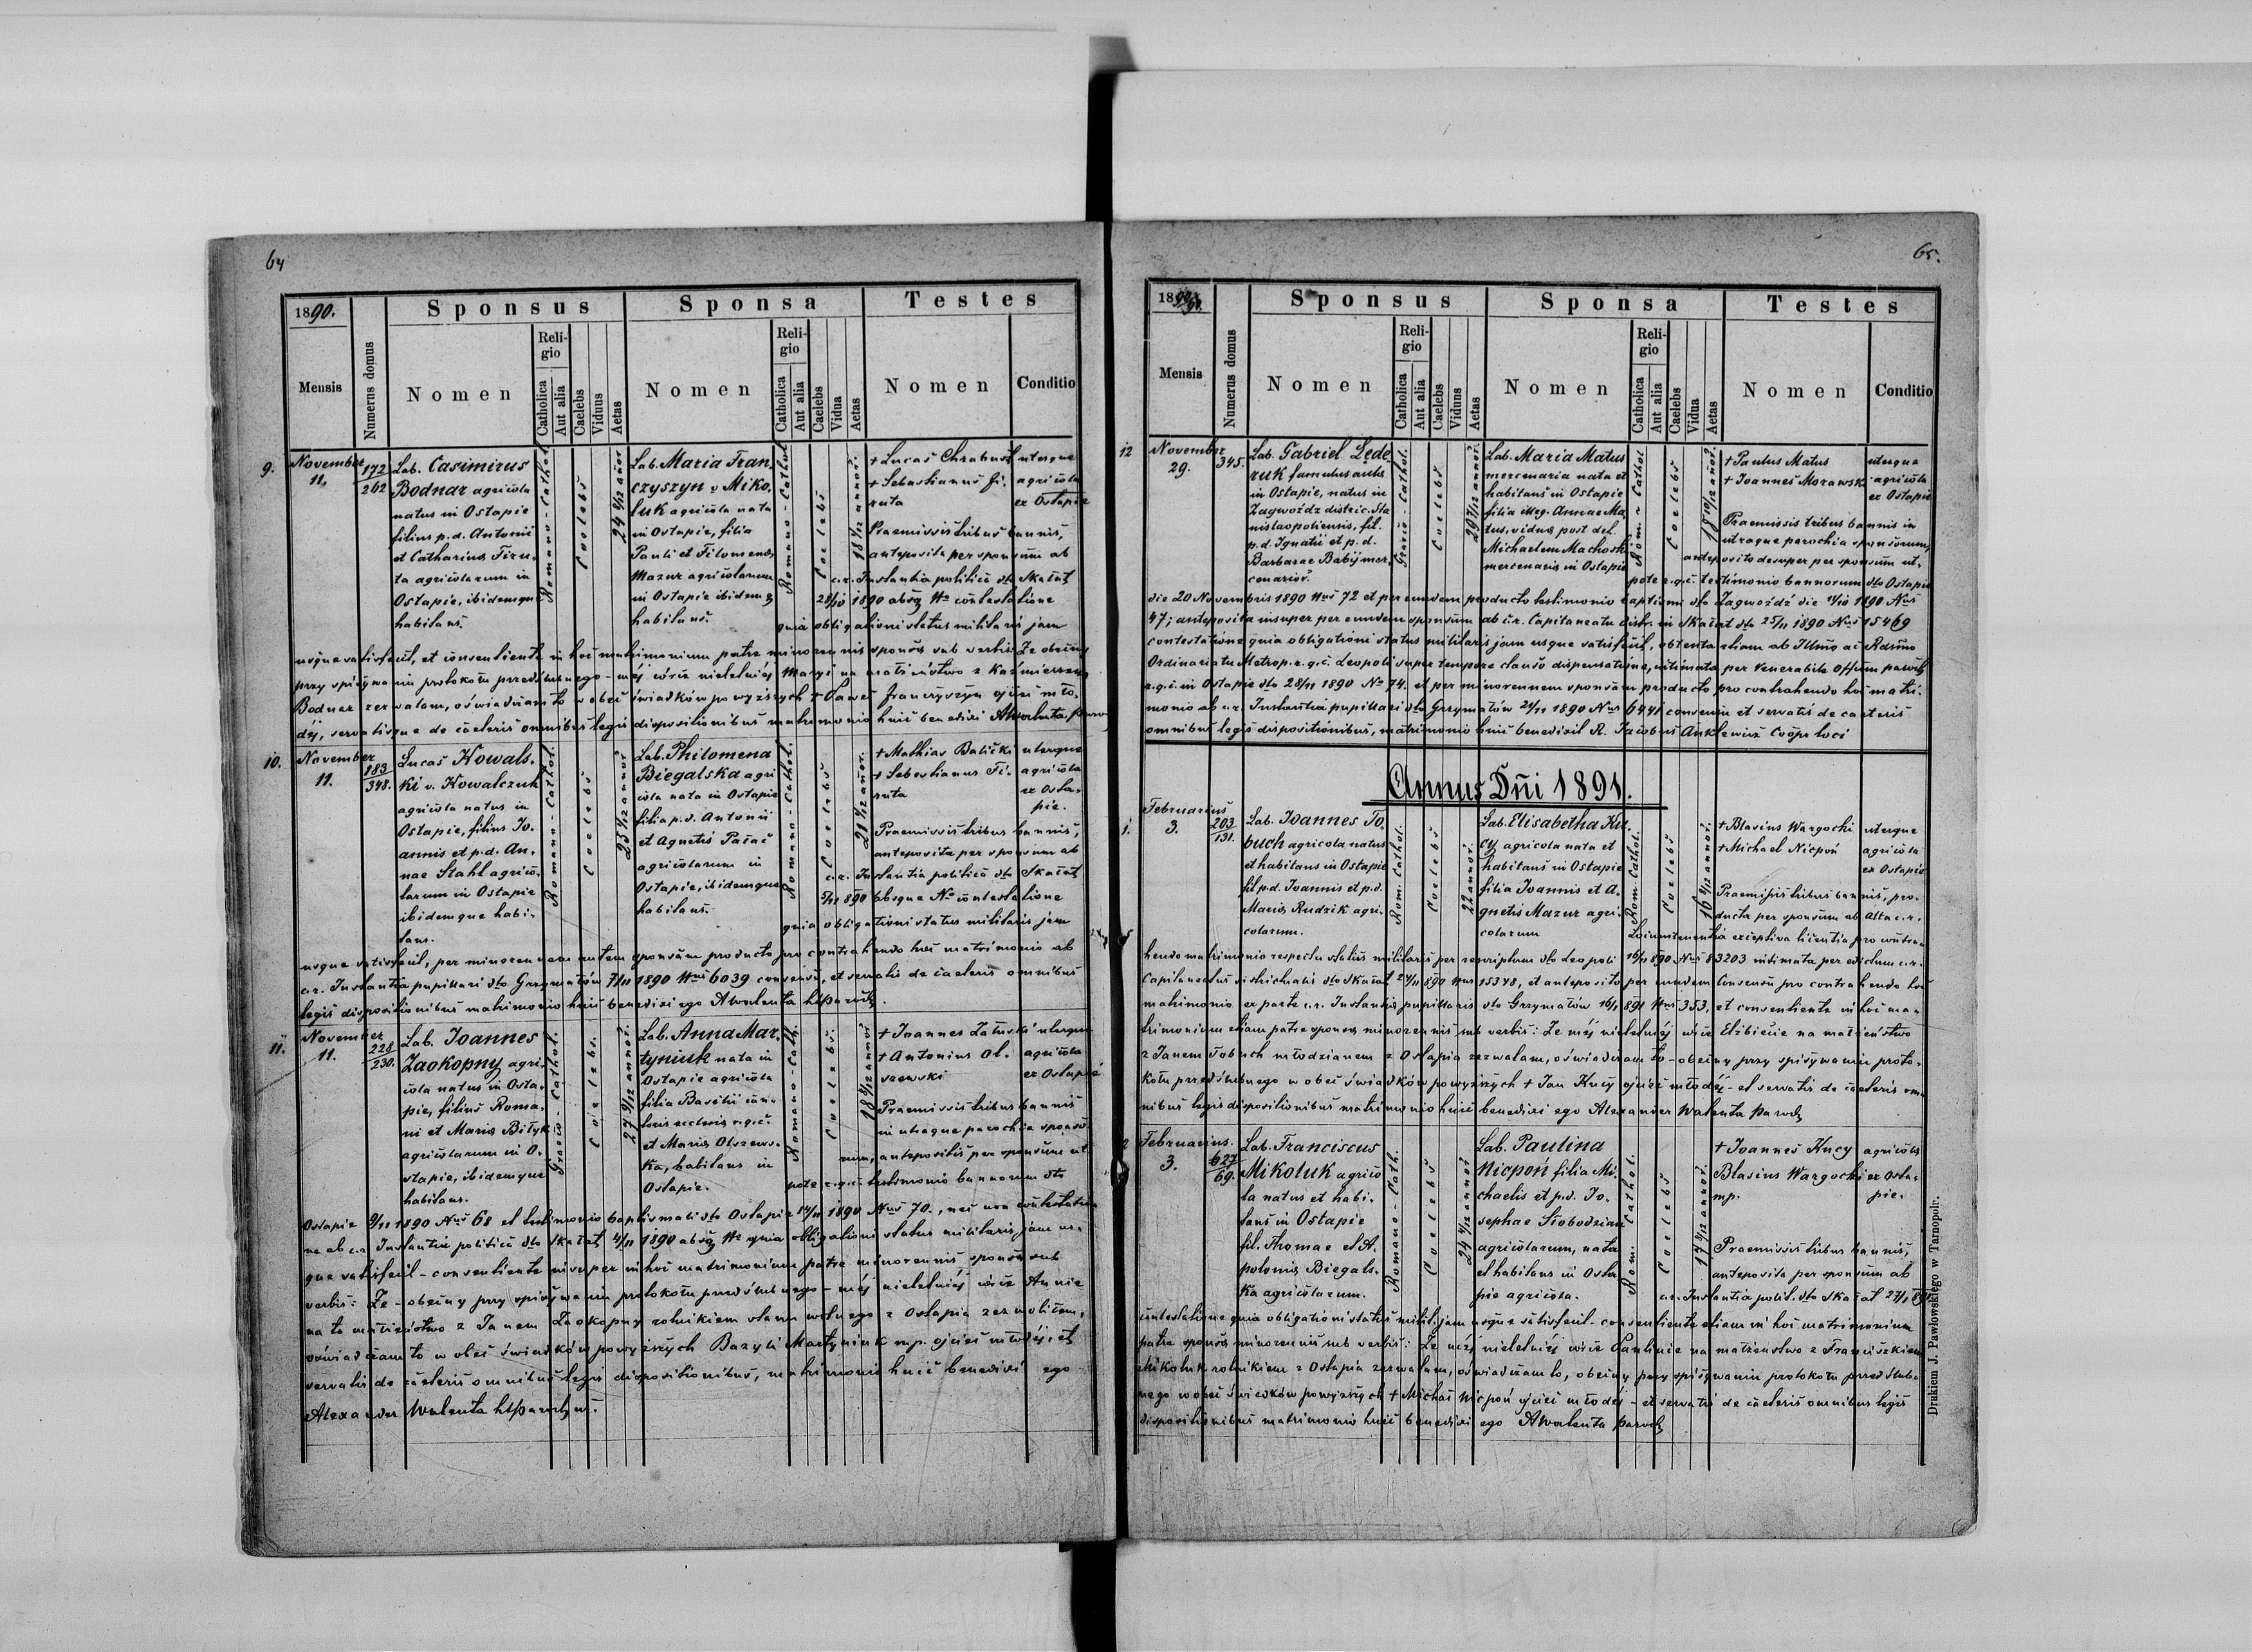 64
1890.
Sponsus
Sponsa
Testes
Mensis
Numerus domus
Nomen
Religio
Catholica
Aut alia
Caelebs
Viduus
Aetas
Nomen
Religio
Catholica
Aut alia
Caelebs
Vidua
Aetas
Nomen
Conditio
9.
November
11.
172
262
Lab. Casimirus
Bodnar agricola
natus in Ostapie
filius p.d. Antonii
et Catharinae
agricolarum in
Ostapie, ibidemque
habitans.
Romano-Cathol
Coelebs
24 annor
Lab. Maria Fran
czyszyn v. Miko
luk agricola nata
in Ostapie, filia
Pauli et Filomenae
Mazur agricolarum
in Ostapie ibidemq
habitans.
Romano-Cathol
Coelebs
18 annor.
+ Lucas Chrabust uterque
+ Sebastianus Fi- agricola
ruta ex Ostapie
Praemissis tribus bannis,
anteposita per sponsum ab
c.r. Instantia politica dto Skałat
28/10 1890 absq No contestatione
quia obligationi status militaris jam
usque satisfecit, et consentiente in hoc matrimonium patre minorennis sponsae sub verbis: Że obecny
przy spisywaniu protokołu przedślubnego - mej córce nieletniej Maryi na małżeństwo z Kazmierzem
Bodnar zezwalam, oświadczam to w obec świadków powyższych + Paweł Franczyszyn ojciec mło-
dej, servatisque de caeteris omnibus legis dispositionibus matrimonio huic benedixi AWalenta
10.
November
11.
183
348.
Lucas Kowals-
ki v. Kowalczuk
agricola natus in
Ostapie, filius Jo-
annis et p.d. An-
nae Stahl agrico-
larum in Ostapie
ibidemque habi-
tans.
Romano-Cathol.
Coelebs
23 annor
Lab. Philomena
Biegalska agri
cola nata in Ostapie
filia p.d. Antonii
et Agnetis Pacac
agricolarum in
Ostapie, ibidemque
habitans.
Romano-Cathol.
Coelebs
21 annor.
+ Mathias Balicki uterque
+ Sebastianus Fi- agricola
ruta ex Osta-
pie.
Praemissis tribus bannis,
anteposita per sponsum ab
c.r. Instantia politica dto Skałat
5/11 890 absque No contestatione
quia obligationi status militaris jam
usque satisfecit, per minorennem autem sponsam producto pro contrahendo hoc matrimonio ab
c.r. Instantia pupillari dto Grzymałów 7/11 1890 Nus 6039 consensu, et servatis de caeteris omnibus
legis dispositionibus matrimonio huic benedixi ego AWalenta
11.
November
11.
228
230.
Lab. Joannes
Zaokopny agri-
cola natus in Osta-
pie, filius Roma-
ni et Mariae Biłyk
agricolarum in O-
stapie, ibidemque
habitans.
Graeco-Cathol.
Coelebs.
27 annor.
Lab. Anna Mar
tyniuk nata in
Ostapie agricola
filia Basilii can-
toris ecclesiae r.g.c.
et Mariae Olszews-
ka, habitans in
Ostapie.
Romano-Cath
Coelebs.
18 annor
+ Joannes Załuski uterque
+ Antonius Ol- agricola
szewski ex Ostapie
Praemissis tribus bannis
in utraque parochia sponso-
rum, antepositis per sponsum ut
pote r.g.c. testimonio bannorum dto
Ostapie 9/11 1890 Nus 68 et testimonio baptismali dto Ostapie 1890 Nus 70., nec non contestatio
ne ab c.r. Instantia politica dto Skałat 4/11 1890 absq No quia obligationi status militaris jam us-
que satisfecit - consentiente insuper in hoc matrimonium patre minorennis sponsae sub
verbis: Że - obecny przy spisywaniu protokołu przedślubnego - mej nieletniej córce Annie
na to małżeństwo z Janem Zaokopny rolnikiem stanu wolnego z Ostapia zezwoliłem,
oświadczam to w obec świadków powyższych Bazyli Martyniuk mp. ojciec młodej, et
servatis de caeteris omnibus legis dispositionibus, matrimonio huic benedixi ego
Alexander Walenta
65.
1890/91.
Sponsus
Sponsa
Testes
Mensis
Numerus domus
Nomen
Religio
Catholica
Aut alia
Caelebs
Viduus
Aetas
Nomen
Religio
Catholica
Aut alia
Caelebs
Vidua
Aetas
Nomen
Conditio
12
November
29.
345.
Lab. Gabriel Lede
ruk famulus aulic
in Ostapie, natus in
Zagwoźdz distric. Sta
nislaopoliensis, fil.
p.d. Ignatii et p.d.
Barbarae Babij mer-
cenarior.
Graeco-Cathol.
Coelebs
29 7/12 annor.
Lab. Maria Matus
mercenaria nata et
habitans in Ostapie
filia illeg. Annae Ma
tus, vidua post def.
Michaelem Machoski
mercenaria in Ostapie
Rom.-Cathol
Coelebs
18 10/12 annor.
+ Paulus Matus uterque
+ Joannes Morawski agricola
ex Ostapie
Praemissis tribus bannis in
utraque parochia sponsorum,
anteposito desuper per sponsum ut-
pote r.g.c. testimonio bannorum dto Ostapie
die 20 Novembris 1890 Nus 72 et per eundem producto testimonio baptismi dto Zagwoźdź die 1890 Nus
47; anteposita insuper per eundem sponsum ab c.r. Capitaneatu distr. in Skałat dto 25/11 1890 Nus 15469
contestatione quia obligationi status militaris jam usque satisfecit, obtenta etiam ab Illmo ac Rdsmo
Ordinariatu Metrop. r.g.c. Leopoli super tempore clauso dispensatione, intimata per Venerabile Offum paroch
r.g.c. in Ostapie dto 28/11 1890 No 74. et per minorennem sponsam producto pro contrahendo hoc matri-
monio ab c.r. Instantia pupillari dto Grzymałów 21/11 1890 Nus 6441 consensu et servatis de caeteris
omnibus legis dispositionibus, matrimonio huic benedixit R. Jacobus Anklewicz Coopr loci
Annus Dni 1891.
1.
Februarius
3.
203
131.
Lab. Joannes To
buch agricola natus
et habitans in Ostapie
fil p.d. Joannis et p.d.
Mariae Rudzik agri-
colarum.
Rom. Cathol.
Coelebs
22 annor.
Lab. Elisabetha Ku-
cy agricola nata et
habitans in Ostapie
filia Joannis et A-
gnetis Mazur agri-
colarum
Rom. Cathol.
Coelebs
16 annor.
+ Blasius Wargocki uterque
+ Michael Nicpoń agricola
ex Ostapie
Praemissis tribus bannis, pro-
ducta per sponsum ab Alta c.r.
Locumtenentia exceptiva licentia pro contra-
hendo matrimonio respectu status militaris per rescriptum dto Leopoli 16/11 890 Nus 83203 intimata per edictum c.r.
Capitaneatus districtualis dto Skałat 24/11 890 Nus 15348, et anteposito per eundem Consensu pro contrahendo hoc
matrimonio ex parte c.r. Instantiae pupillaris dto Grzymałów 16/1 891 Nus 353, et consentiente in hoc ma-
trimonium etiam patre sponsae minorennis sub verbis: Że mej nieletniej córce Elżbiecie na małżeństwo
z Janem Tobuch młodzianem z Ostapia zezwalam, oświadczam to - obecny przy spisywaniu proto-
kołu przedślubnego w obec świadków powyższych + Jan Kucy ojciec młodej - et servatis de caeteris om-
nibus legis dispositionibus matrimonio huic benedixi ego Alexander Walenta Paroch
2
Februarius.
3.
627
69.
Lab. Franciscus
Mikoluk agrico
la natus et habi-
tans in Ostapie
fil. Thomae et A-
poloniae Biegals-
ka agricolarum.
Romano-Cath.
Coelebs
24 annor
Lab. Paulina
Nicpoń filia Mi-
chaelis et p.d. Jo-
sephae Słobodzian
agricolarum, nata
et habitans in Osta-
pie agricola.
Rom. Cathol.
Coelebs
17 annor.
+ Joannes Kucy agricola
Blasius Wargocki ex Osta-
mp. pie.
Praemissis tribus bannis,
anteposita per sponsum ab
c.r. Instantia polit. dto Skałat 27/1 891
contestatione quia obligationi status milit. jam usque satisfecit - consentiente etiam in hoc matrimonium
patre sponsae minorennis sub verbis: Że mej nieletniej córce Paulinie na małżeństwo z Franciszkiem
Mikoluk rolnikiem z Ostapia zezwalam, oświadczam to, obecny przy spisywaniu protokołu przedślub-
nego w obec świadków powyższych + Michał Nicpoń ojciec młodej - et servatis de caeteris omnibus legis
dispositionibus matrimonio huic benedixi ego AWalenta Paroch
Drukiem J. Pawłowskiego w Tarnopolu.